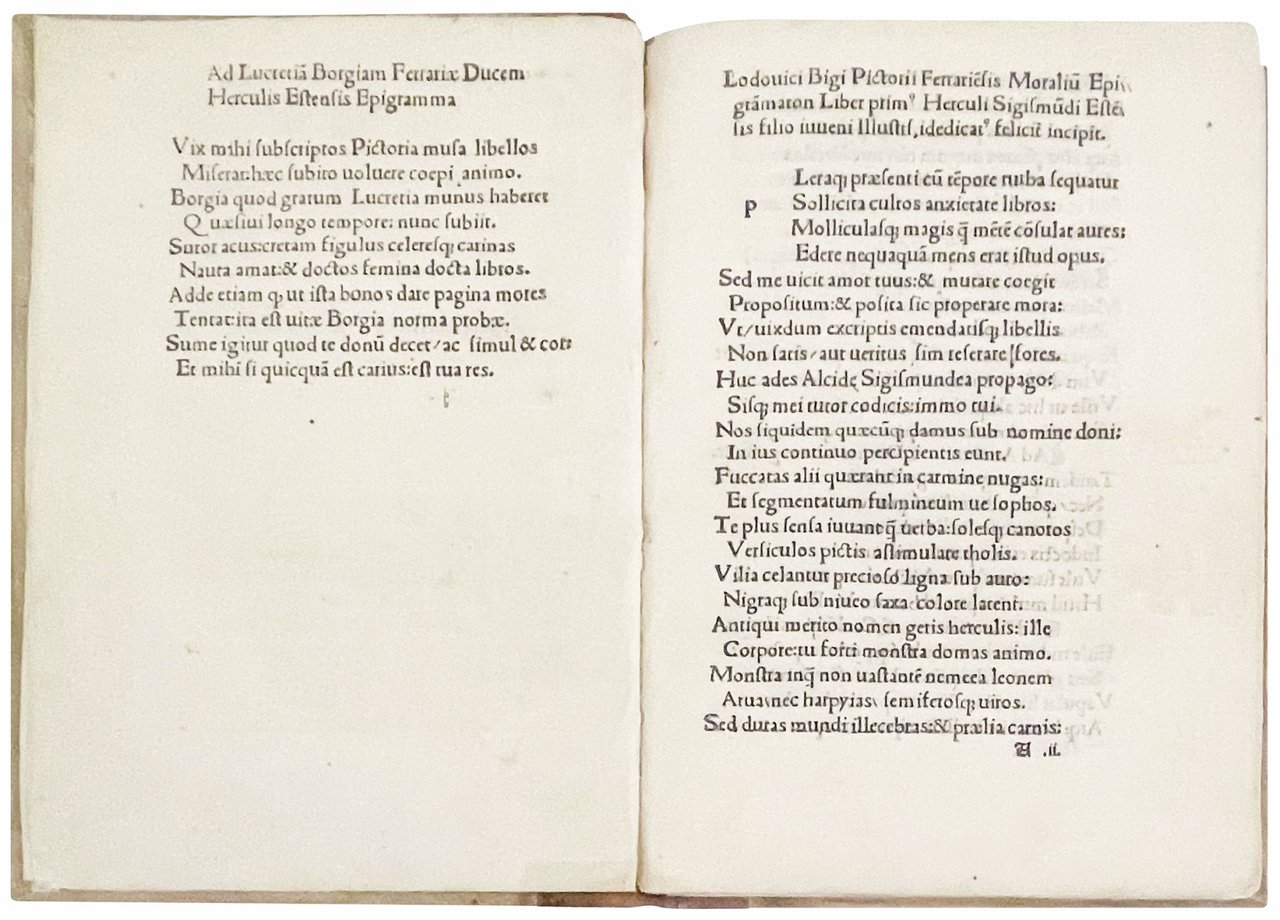 Ad Lucretiā Borgiam Ferrariæ Ducem
Herculis Estensis Epigramma
Vix mihi subscriptos Pictoria musa libellos
Miserat:hæc subito uoluere coepi animo.
Borgia quod gratum Lucretia munus haberet
Quæsiui longo tempore: nunc subiit.
Sutor acus:cretam figulus celeresq; carinas
Nauta amat:& doctos femina docta libros.
Adde etiam q; ut ista bonos dare pagina mores
Tentat:ita est uitæ Borgia norma probæ.
Sume igitur quod te donū decet/ac simul & cor:
Et mihi si quicquā est carius:est tua res.
Lodouici Bigi Pictorii Ferrariēsis Moraliū Epi\\
grāmaton Liber prim⁹ Herculi Sigismūdi Estē\
sis filio iuueni Illustis, idedicat⁹ feliciť incipit.
Leraq; præsenti cū tēpore turba sequatur
p Sollicita cultos anxietate libros:
Molliculasq; magis q̄ mētē cōsulat aures:
Edere nequaquā mens erat istud opus.
Sed me uicit amor tuus:& mutare coegit
Propositum:& posita sic properare mora:
Vt/uixdum excriptis emendatisq; libellis
Non satis/aut ueritus sim reserare fores.
Huc ades Alcidę Sigismundea propago:
Sisq; mei tutor codicis:immo tui.
Nos siquidem quæcūq; damus sub nomine doni:
In ius continuo percipientis eunt.
Fuccatas alii quærant in carmine nugas:
Et segmentatum fulmineum ue sophos.
Te plus sensa iuuant q̄ uerba:solesq; canoros
Versiculos pictis assimulare tholis.
Vilia celantur precioso ligna sub auro:
Nigraq; sub niueo saxa colore latent.
Antiqui merito nomen geris herculis: ille
Corpore:tu forti monstra domas animo.
Monstra inq̄ non uastantē nemeea leonem
Arua\nec harpyias\ semiferosq; uiros.
Sed duras mundi illecebras:& prælia carnis:
A .ii.